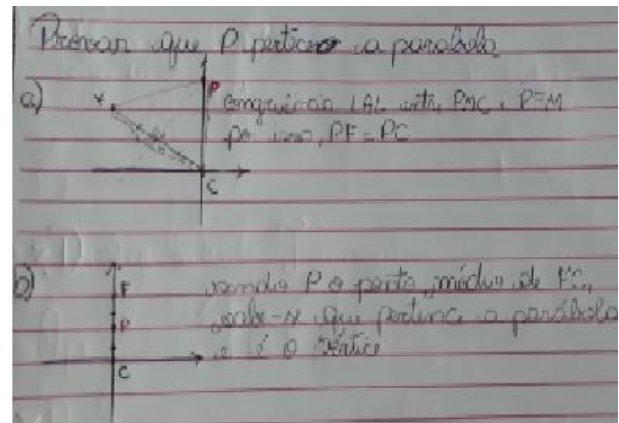 Provar que P pertence a parabola
a)
F
P
congruência LAL entre PMC e PFM
por isso, PF = PC
C
b)
F
sendo P o ponto médio de FC,
P
sabe-se que pertence a parábola
e é o vértice
C